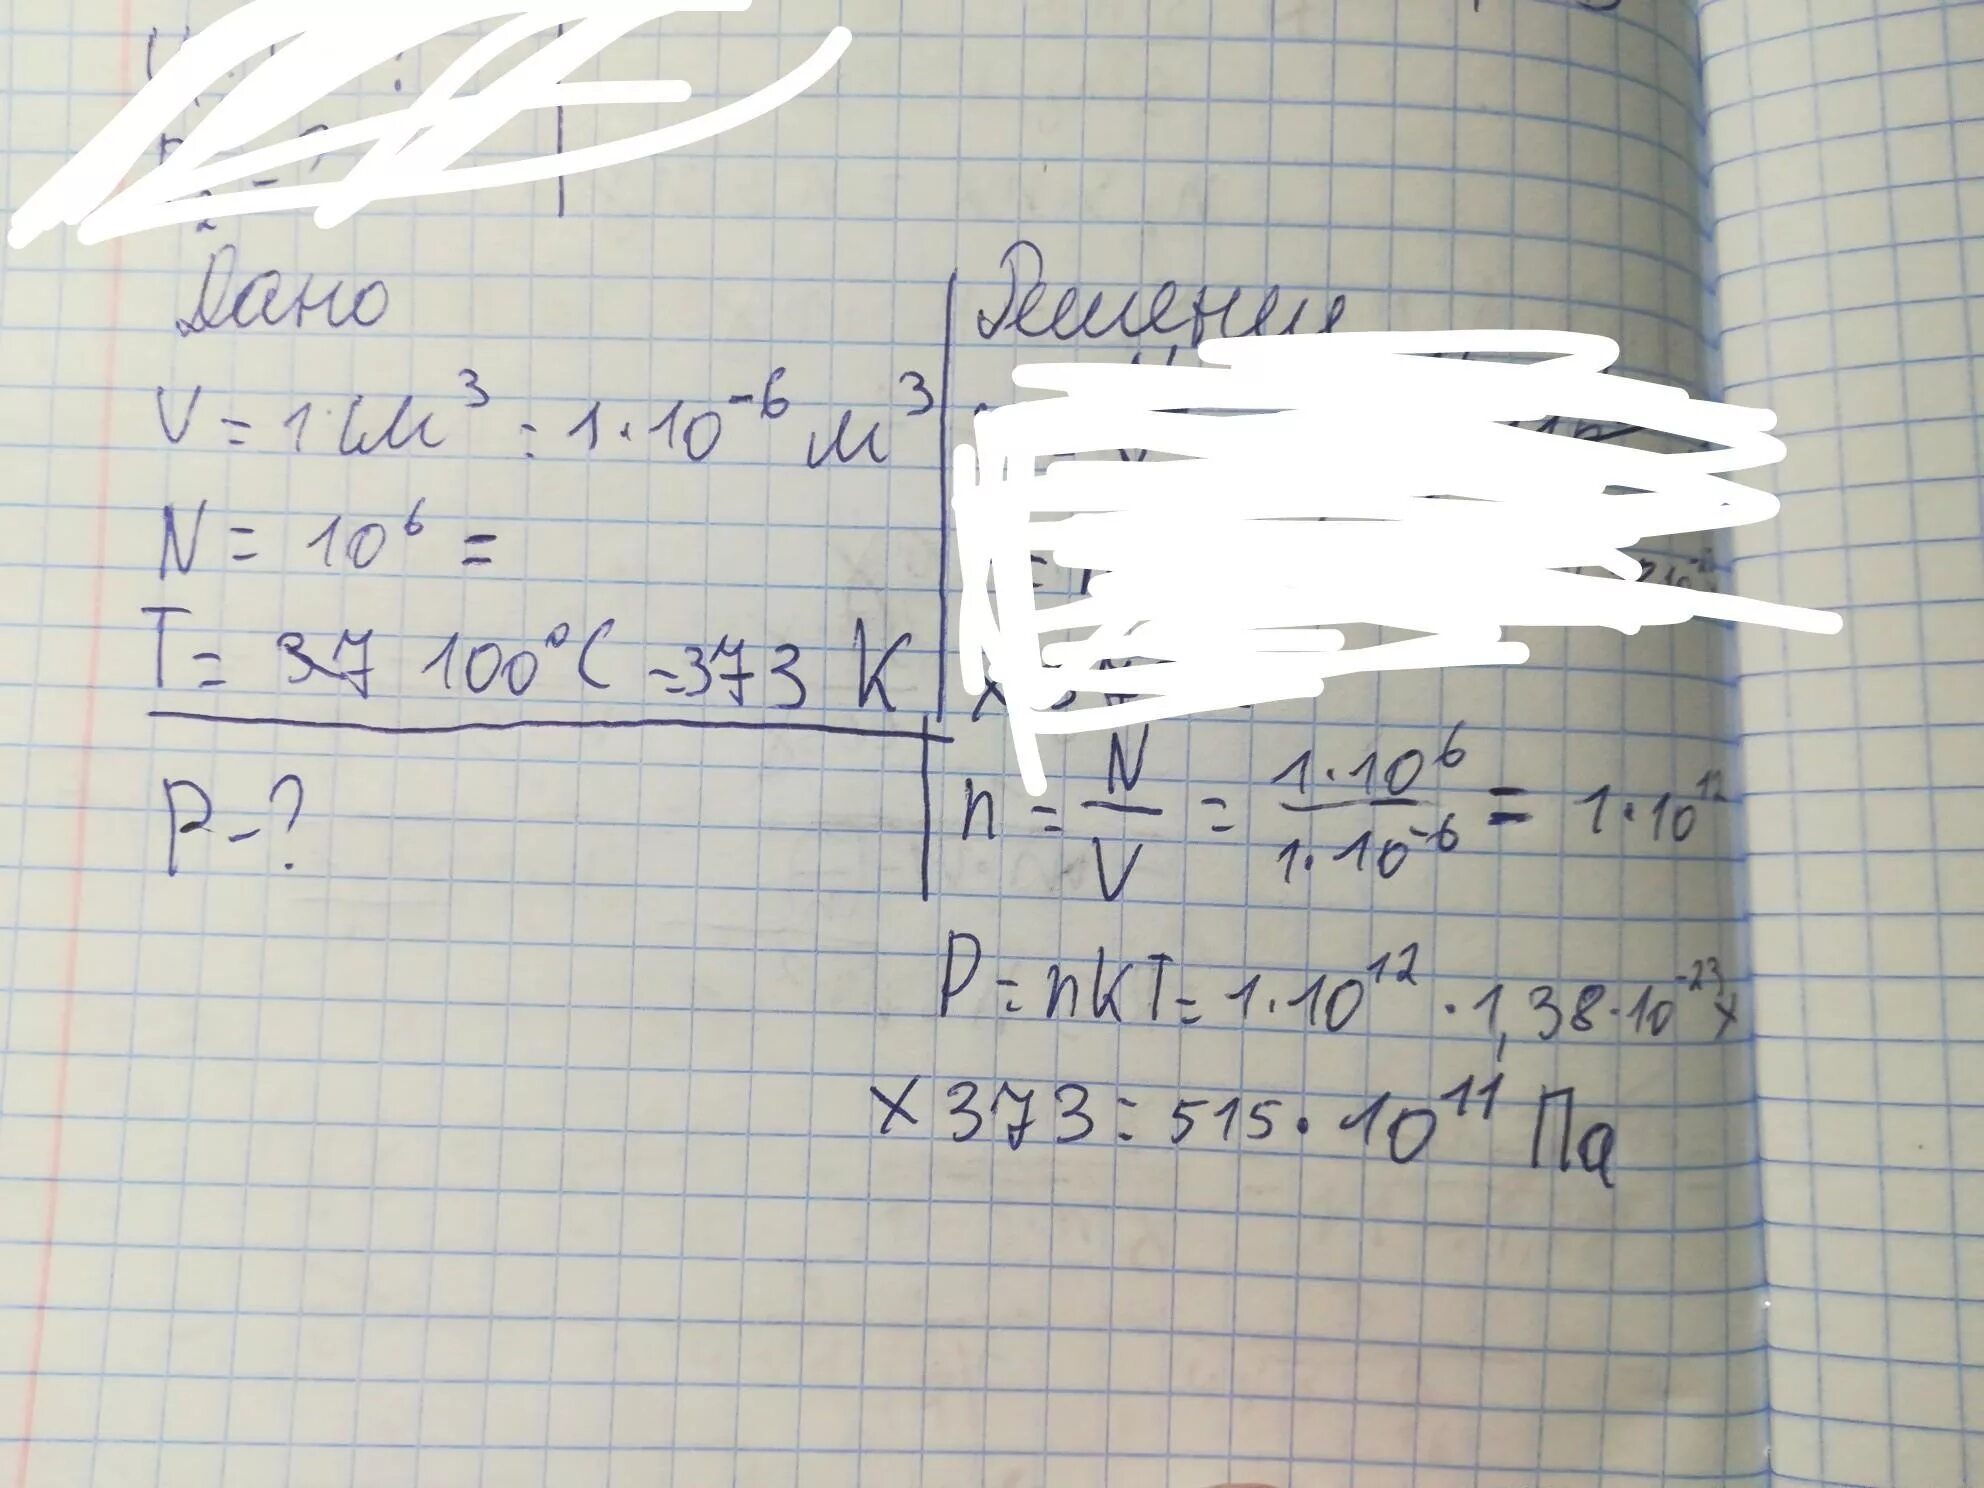 Дано
V = 1 см³ = 1·10⁻⁶ м³
N = 10⁶ =
T = 37 100°C = 373 K
P - ?
Решении
n = N/V = 1·10⁶/1·10⁻⁶ = 1·10¹²
P = nkT = 1·10¹² · 1,38·10⁻²³ ×
× 373 = 515·10¹¹ Па